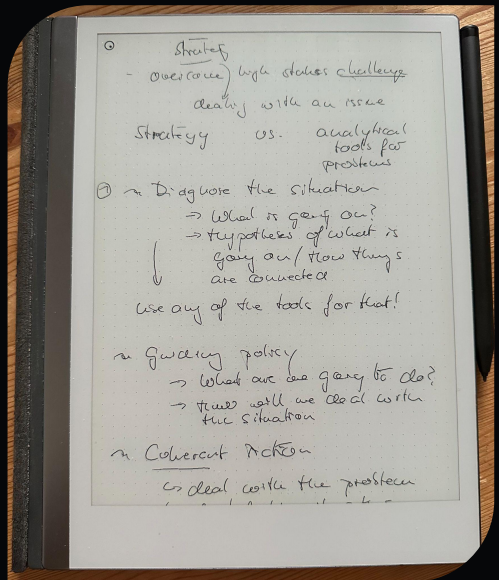 Strategy
- overcome high stakes challenge
dealing with an issue
Strategy vs. analytical
tools for
problems
~ Diagnose the situation
→ What is going on?
→ Hypotheses of what is
going on / How things
are connected
use any of the tools for that!
~ Guiding policy
→ What are we going to do?
→ How will we deal with
the situation
~ Coherent Action
↳ deal with the problem